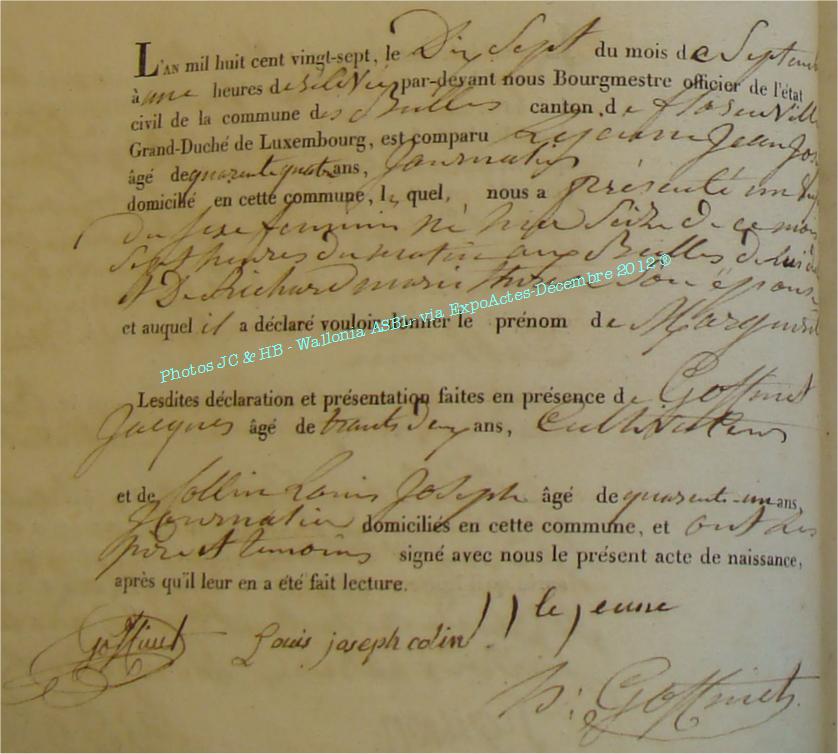 L'AN mil huit cent vingt-sept, le Dix Sept du mois de Septem
à une heures de par-devant nous Bourgmestre officier de l'état
civil de la commune des Bulles canton de florenville
Grand-Duché de Luxembourg, est comparu Lejeune Jean Jos
âgé de quarante quatre ans, Journalier
domicilié en cette commune, lequel, nous a présenté un
du sexe feminin né hier Seize de ce mois
Sept heures du matin aux Bulles de lui
et De Richard marie therese Son épouse
et auquel il a déclaré vouloir donner le prénom de Margueri
Photos JC & HB - Wallonia ASBL- via ExpoActes-Décembre 2012 ®
Lesdites déclaration et présentation faites en présence de Goffinet
Jacques âgé de trente deux ans, Cultivateur
et de Collin Louis Joseph âgé de quarente-un ans,
Journalier domiciliés en cette commune, et ont les
père et temoins signé avec nous le présent acte de naissance,
après qu'il leur en a été fait lecture.
J J le jeune
goffinet Louis joseph colin
Goffinet